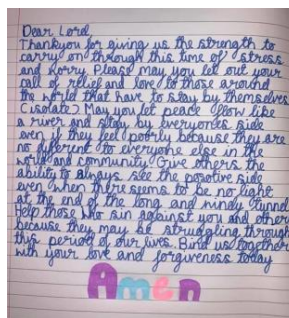 Dear Lord,
Thankyou for giving us the strength to
carry on through this time of stress
and worry. Please may you let out your
call of relief and love to those around
the world that have to stay by themselves
(isolate). May you let peace flow like
a river and stay by everyones side
even if they feel poorly because they are
no different to everyone else in the
world and community. Give others the
ability to always see the posotive side
even when there seems to be no light
at the end of the long and windy tunnel
Help those who sin against you and others
because they may be struggling through
this period of our lives. Bind us together
with your love and forgiveness today
Amen